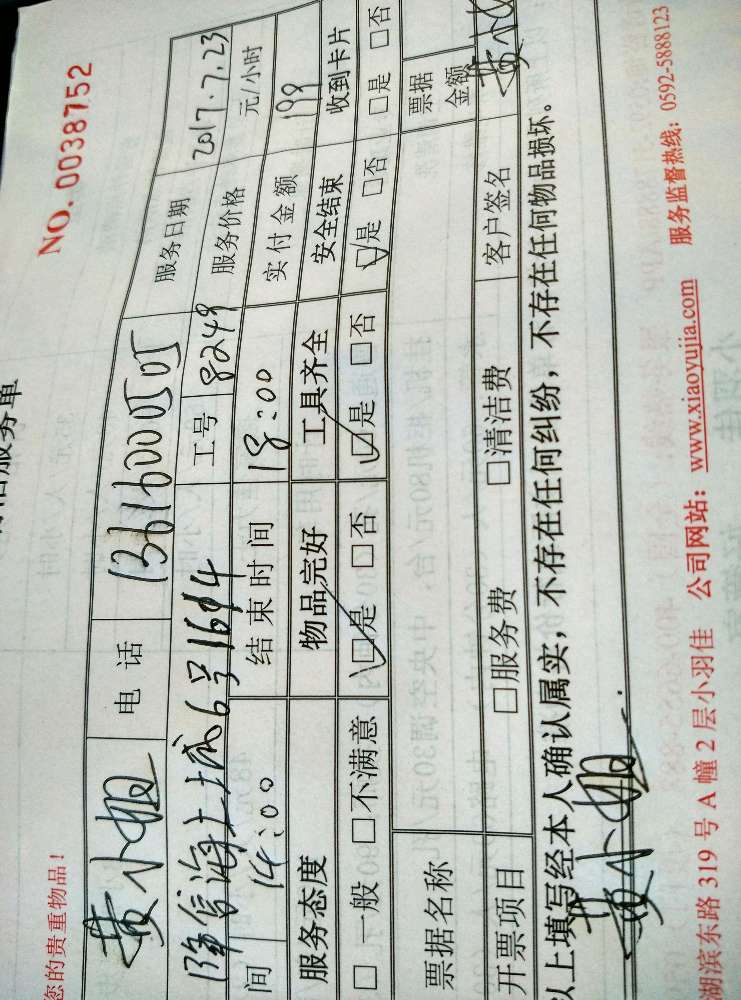 服务单
NO. 0038752
您的贵重物品！
黄小姐 电话 13616000505 服务日期 2017.7.23
隆信海上城6号1694 工号 8249 服务价格 元/小时
间 14:00 结束时间 18:00 实付金额 199
服务态度 物品完好 工具齐全 安全结束 收到卡片
□一般 □不满意 ☑是 □否 ☑是 □否 ☑是 □否 □是 □否
票据名称 票据金额
开票项目 □服务费 □清洁费 客户签名 黄小姐
以上填写经本人确认属实，不存在任何纠纷，不存在任何物品损坏。
黄小姐
湖滨东路 319 号 A 幢 2 层小羽佳 公司网站：www.xiaoyujia.com 服务监督热线：0592-5888123